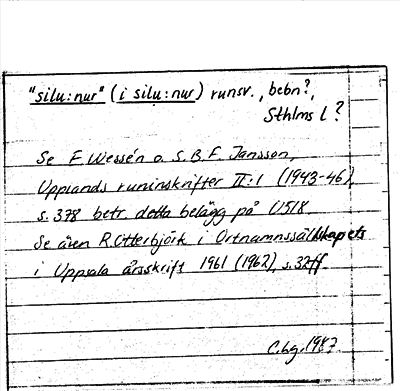 "silu:nur" (i silu:nur) runsv., bebn?,
Sthlms l?
Se E Wessén o. S.B.F. Jansson,
Upplands runinskrifter II:1 (1943-46),
s. 378 betr. detta belägg på U518
Se även R Otterbjörk i Ortnamnssällskapets
i Uppsala årsskrift 1961 (1962), s. 32ff.
C.hg. 1987